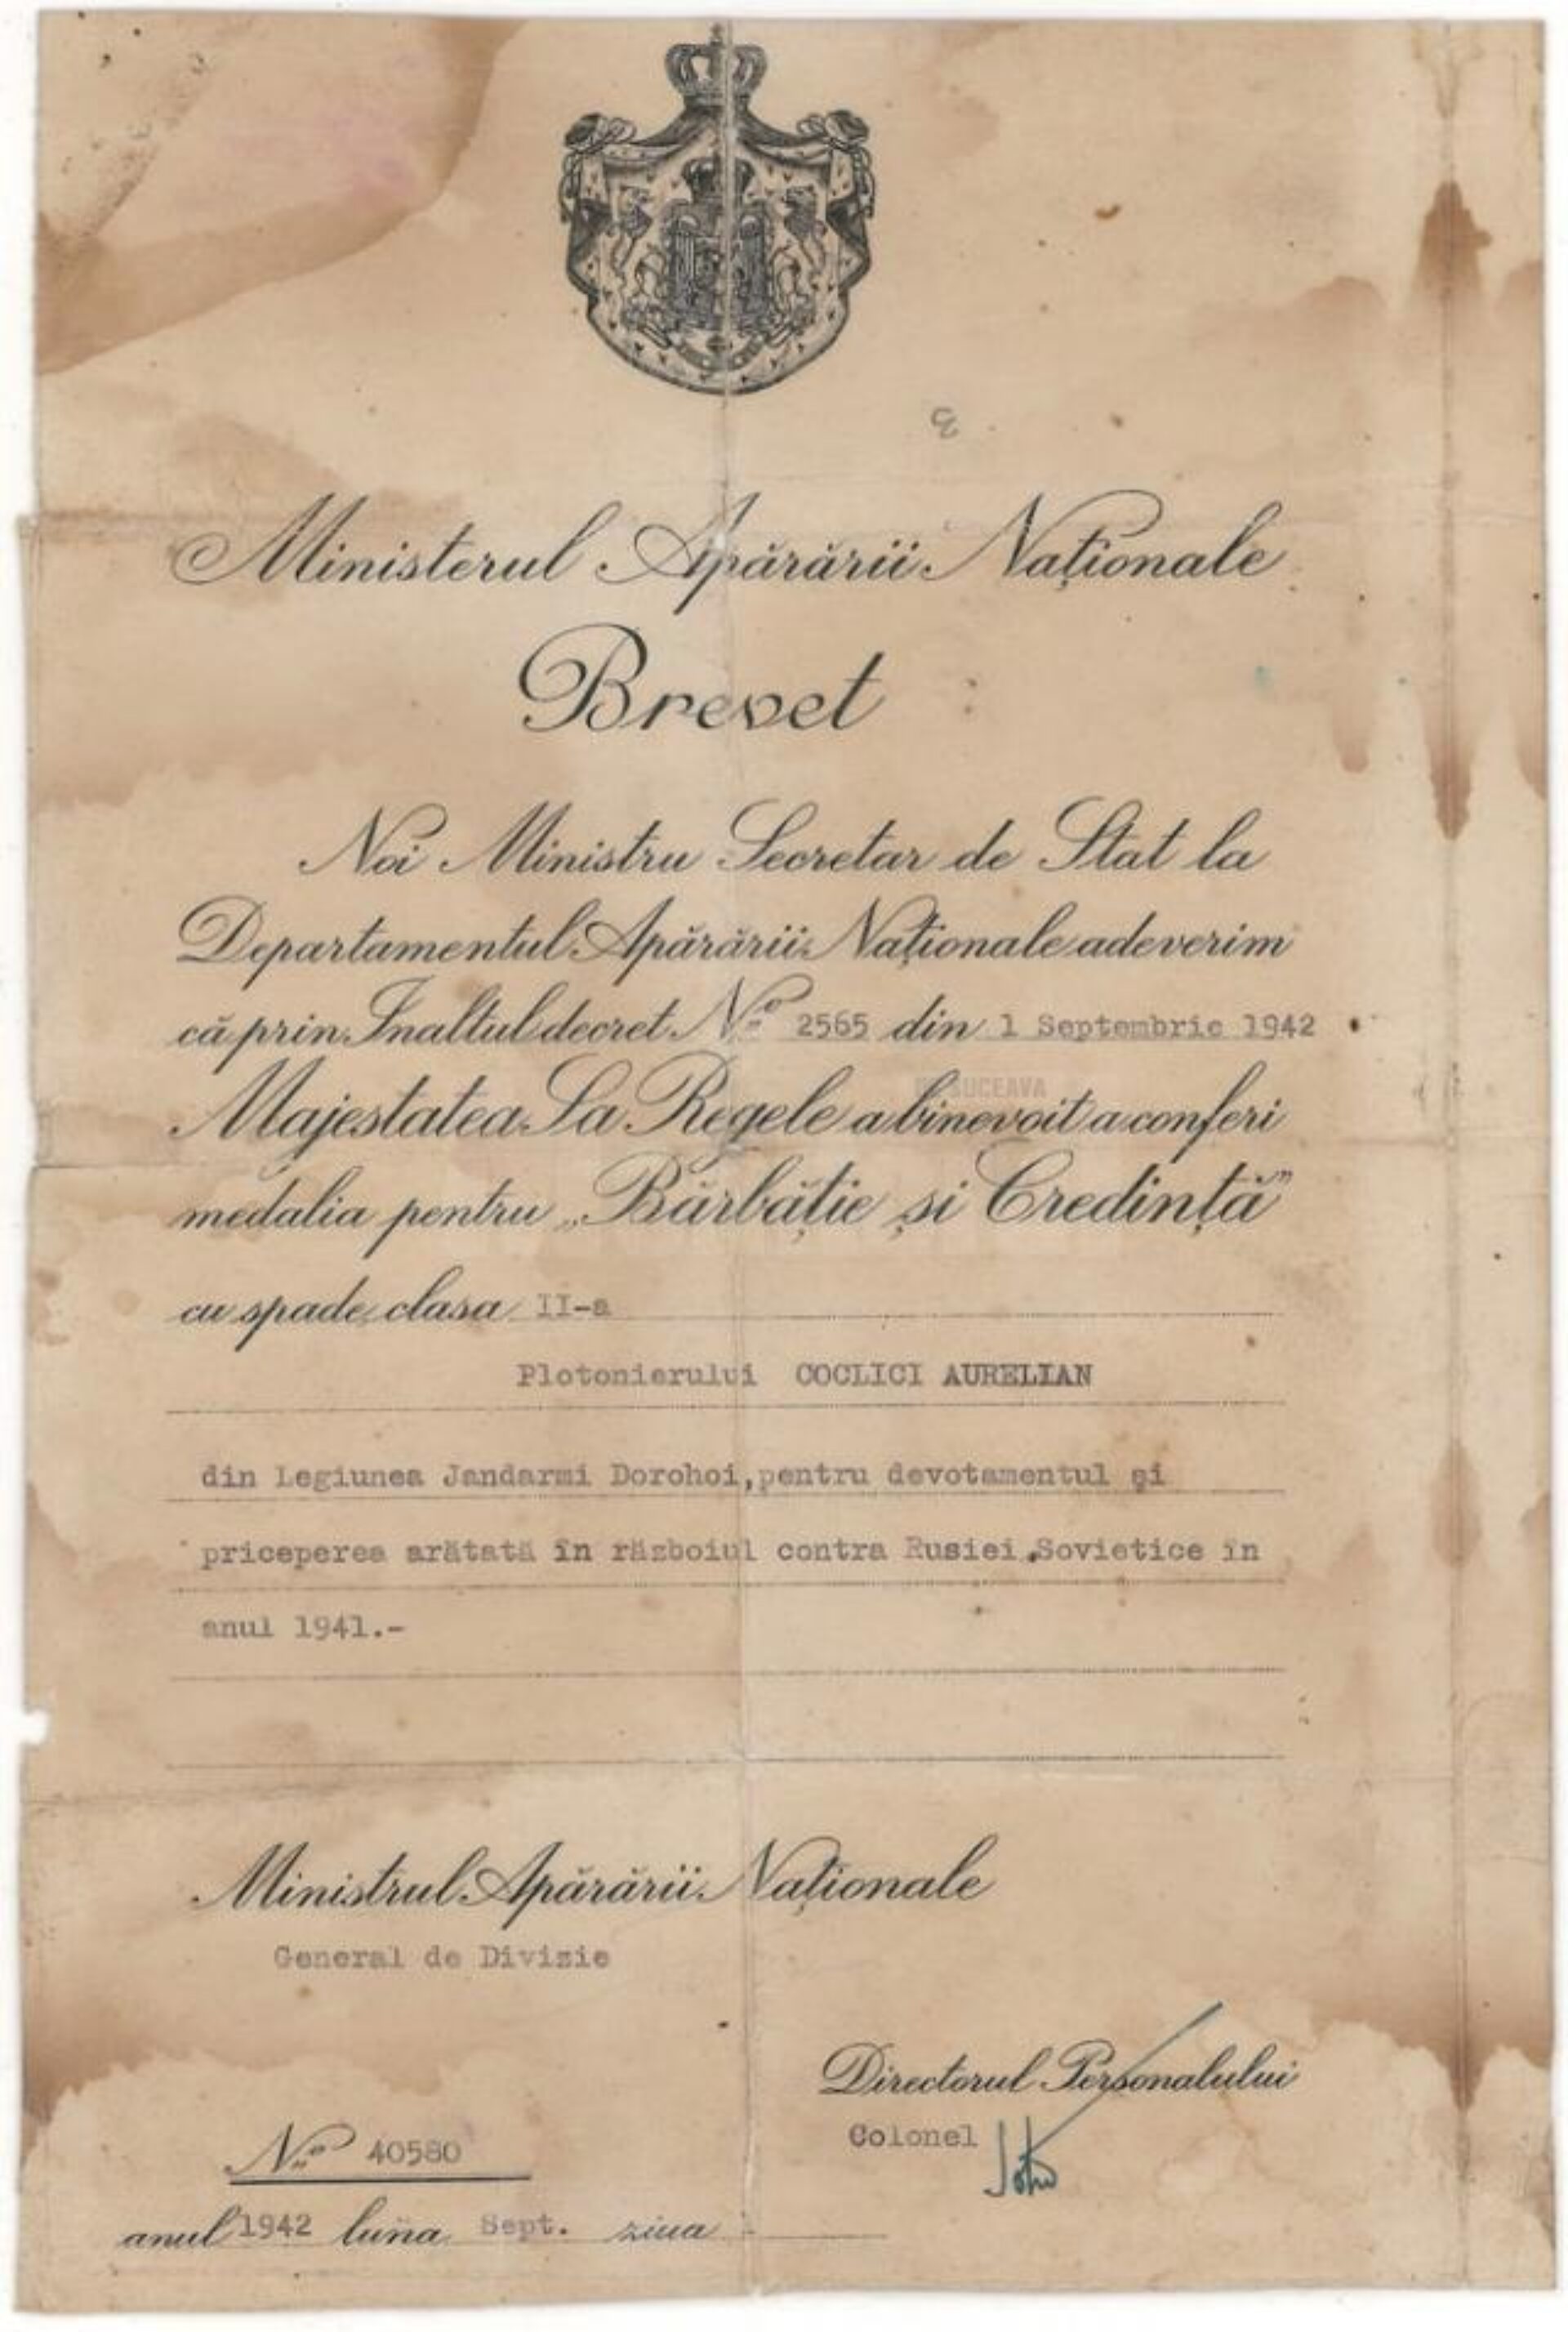 Ministerul Apărării Naţionale
Brevet
Noi Ministru Secretar de Stat la
Departamentul Apărării Naţionale adeverim
că prin Inaltul decret No 2565 din 1 Septembrie 1942
SUCEAVA
Majestatea Sa Regele a binevoit a conferi
medalia pentru „Bărbăţie şi Credinţă”
cu spade clasa II-a
Plotonierului COCLICI AURELIAN
din Legiunea Jandarmi Dorohoi,pentru devotamentul şi
priceperea arătată în războiul contra Rusiei Sovietice în
anul 1941.-
Ministrul Apărării Naţionale
General de Divizie
Directorul Personalului
Colonel
No 40580
anul 1942 luna Sept. ziua